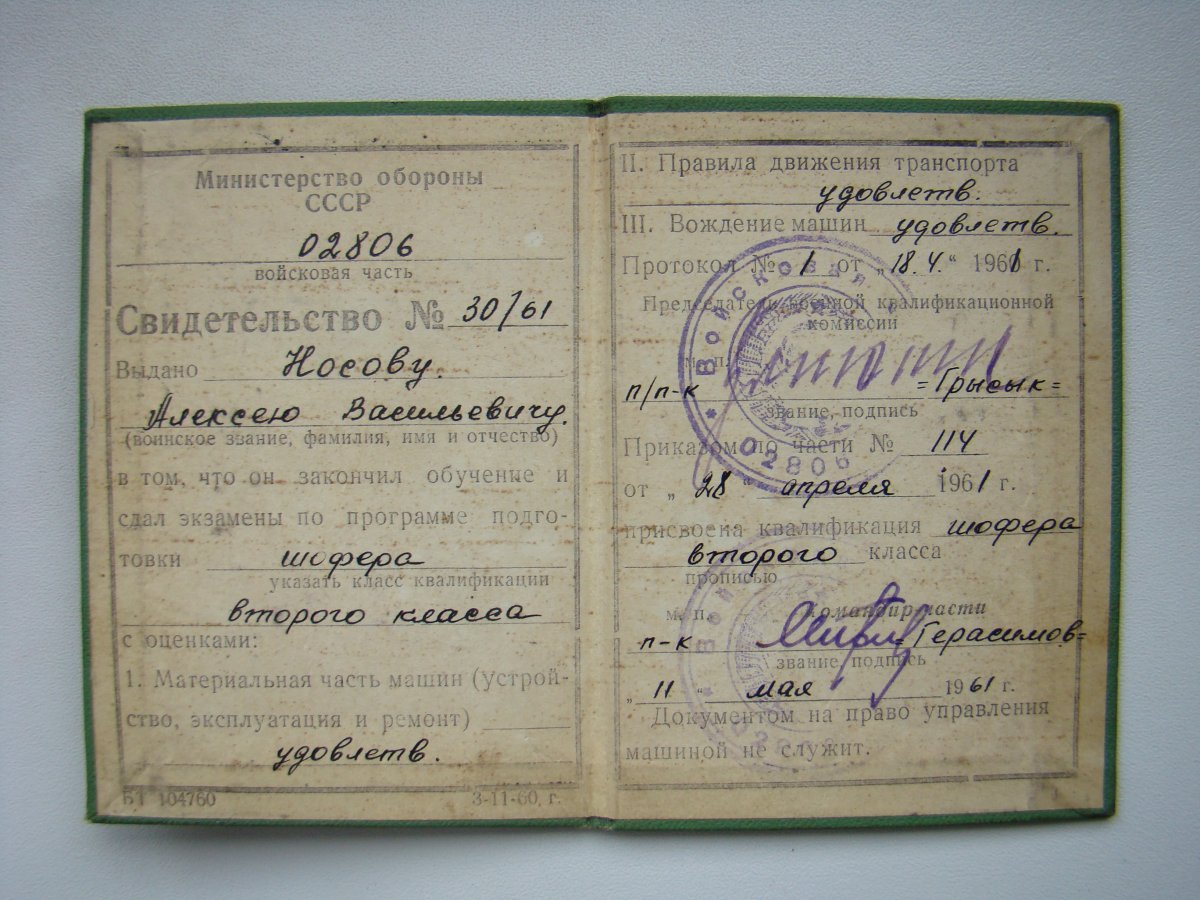 Министерство обороны
СССР
02806
войсковая часть
Свидетельство № 30/61
Выдано Носову
Алексею Васильевичу.
(воинское звание, фамилия, имя и отчество)
в том, что он закончил обучение и
сдал экзамены по программе подго-
товки шофера
указать класс квалификации
второго класса
с оценками:
1. Материальная часть машин (устрой-
ство, эксплуатация и ремонт)
удовлетв.
БТ 104760 3-11-60, г.
II. Правила движения транспорта
удовлетв.
III. Вождение машин удовлетв.
Протокол № 1 от „18.4.“ 1961 г.
Председатель военной квалификационной
комиссии
м. п.
п/п-к =Грысык=
звание, подпись
Приказом по части № 114
от „28“ апреля 1961 г.
присвоена квалификация шофера
второго класса
прописью
м. п. Командир части
п-к =Герасимов=
звание, подпись
„11“ мая 1961 г.
Документом на право управления
машиной не служит.
* Войсковая
02806